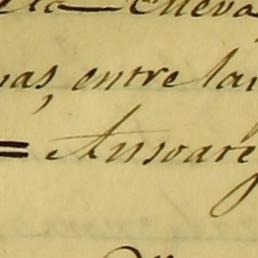 la Cueva
as, entre la
= Ansoare